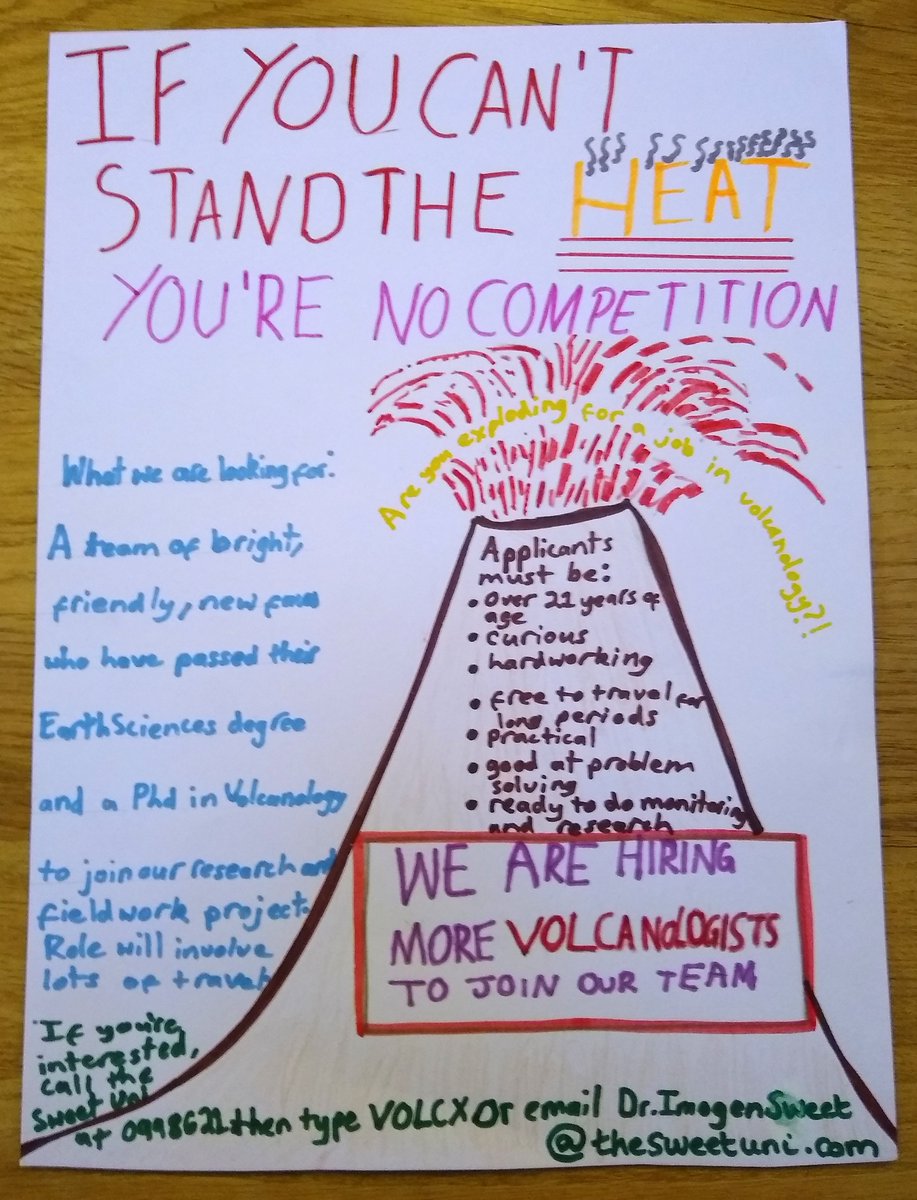 IF YOU CAN'T
STAND THE HEAT
YOU'RE NO COMPETITION
Are you exploding for a job in volcanology?!
What we are looking for:
A team of bright,
friendly, new
who have passed their
Earth Sciences degree
and a Phd in Volcanology
to join our research and
fieldwork project.
Role will involve
lots of travel
Applicants
must be:
• Over 21 years of
age
• curious
• hardworking
• free to travel for
long periods
• practical
• good at problem
solving
• ready to do monitoring
and research
WE ARE HIRING
MORE VOLCANOLOGISTS
TO JOIN OUR TEAM
If you're
interested,
call the
Sweet Uni
at 0998621 then type VOLCX Or email Dr.ImogenSweet
@thesweetuni.com